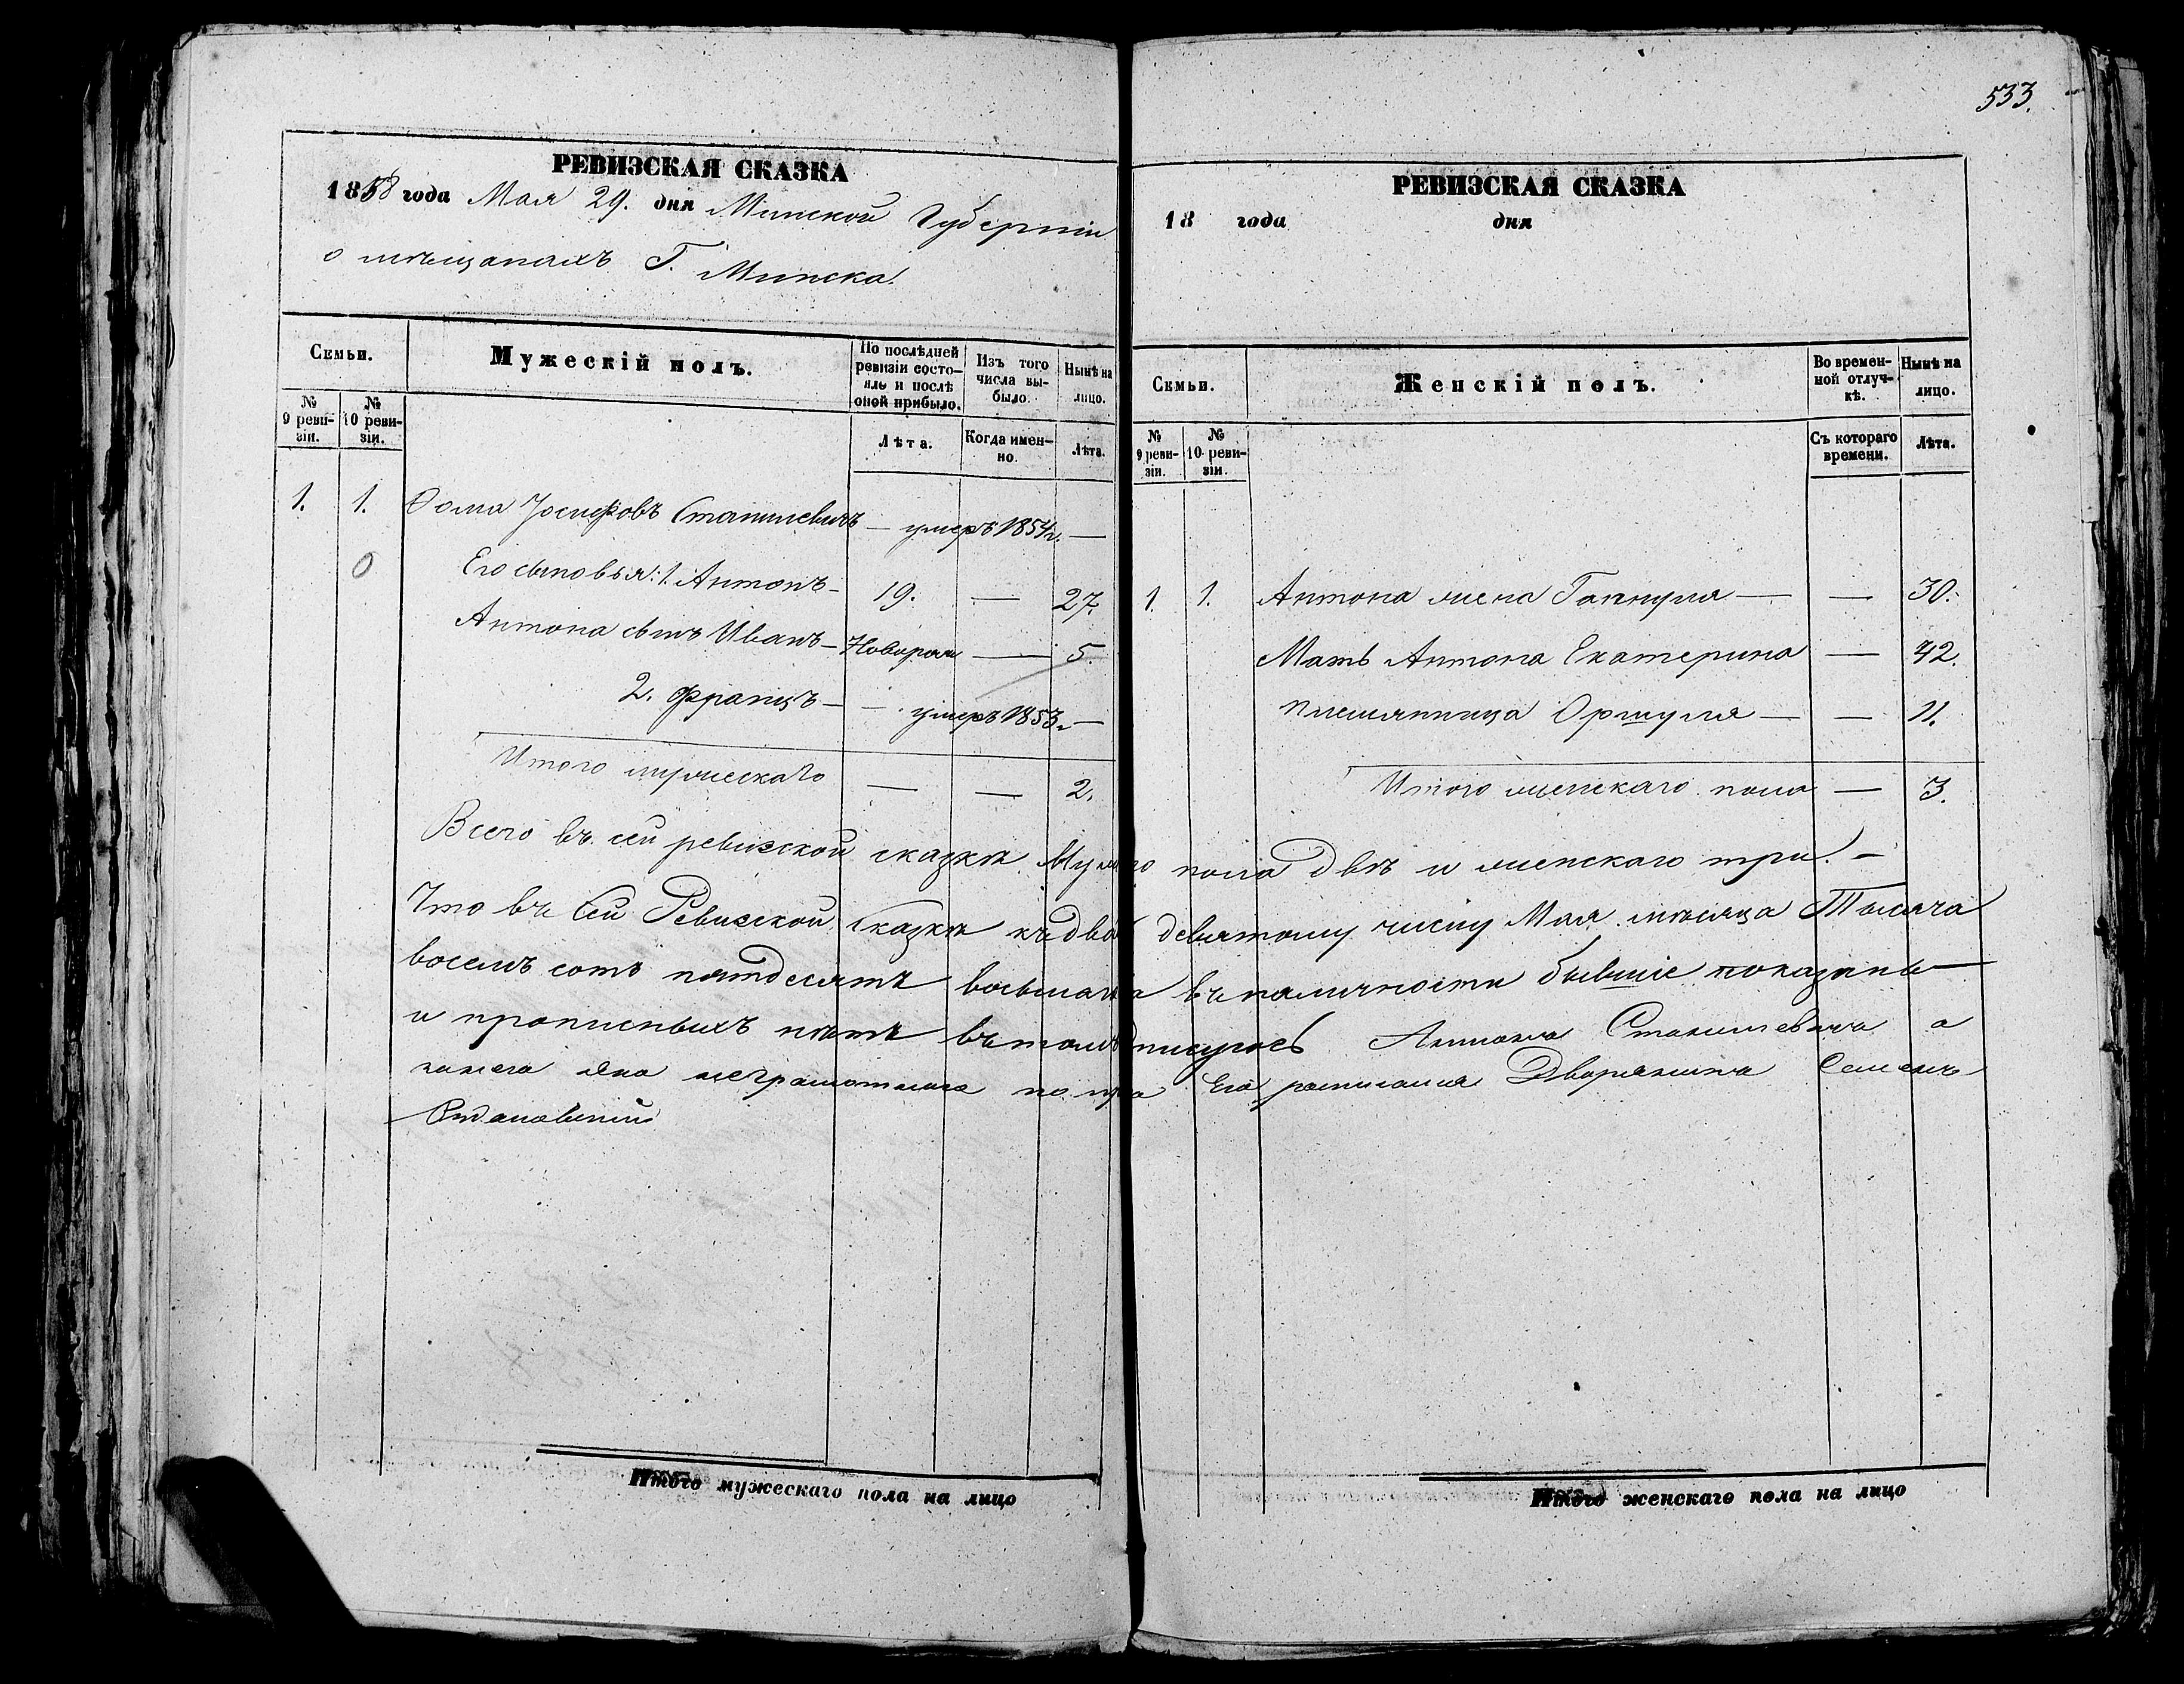 533.
РЕВИЗСКАЯ СКАЗКА
1858 года Мая 29. дня Минской Губерніи
о мѣщанахъ Г. Минска.
Семьи.
Мужескій полъ.
По послѣдней ревизіи состояло и послѣ оной прибыло.
Изъ того числа выбыло.
Нынѣ на лицо.
№ 9 ревизіи.
№ 10 ревизіи.
Лѣта.
Когда именно.
Лѣта.
1. 1. Фома Іосифовъ Станишевичъ — умеръ 1854 г. —
0 Его сыновья: 1. Антонъ — 19. — 27.
Антона сынъ Иванъ — Новорож — 5.
2. Францъ — — умеръ 1853 г. —
Итого мужескаго — — 2.
РЕВИЗСКАЯ СКАЗКА
18 года дня
Семьи.
Женскій полъ.
Во временной отлучкѣ.
Нынѣ на лицо.
№ 9 ревизіи.
№ 10 ревизіи.
Съ котораго времени.
Лѣта.
1. 1. Антона жена Ганнуля — — 30.
Мать Антона Екатерина — 42.
племянница Оршуля — — 11.
Итого женскаго пола — 3.
Всего въ сей ревизской сказкѣ Муж го пола двѣ и женскаго три. —
Что въ сей Ревизской Сказкѣ къ два девятому числу Мая мѣсяца Тысяча
восемь сотъ пятдесятъ восьмаго въ наличности бывшіе показаны
и прописныхъ нѣтъ въ томъ подписуюсь Антонъ Станишевичъ а
вмѣсто его неграмотнаго по прозбѣ Его росписался Дворянинъ Семенъ
Итого мужескаго пола на лицо
Итого женскаго пола на лицо